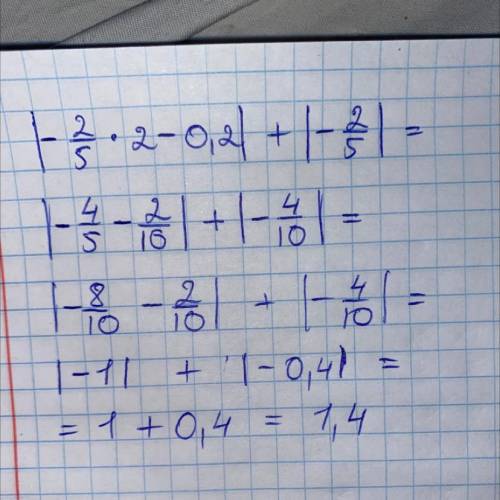 |-2/5 · 2 - 0,2| + |-2/5| =
|-4/5 - 2/10| + |-4/10| =
|-8/10 - 2/10| + |-4/10| =
|-1| + |-0,4| =
= 1 + 0,4 = 1,4